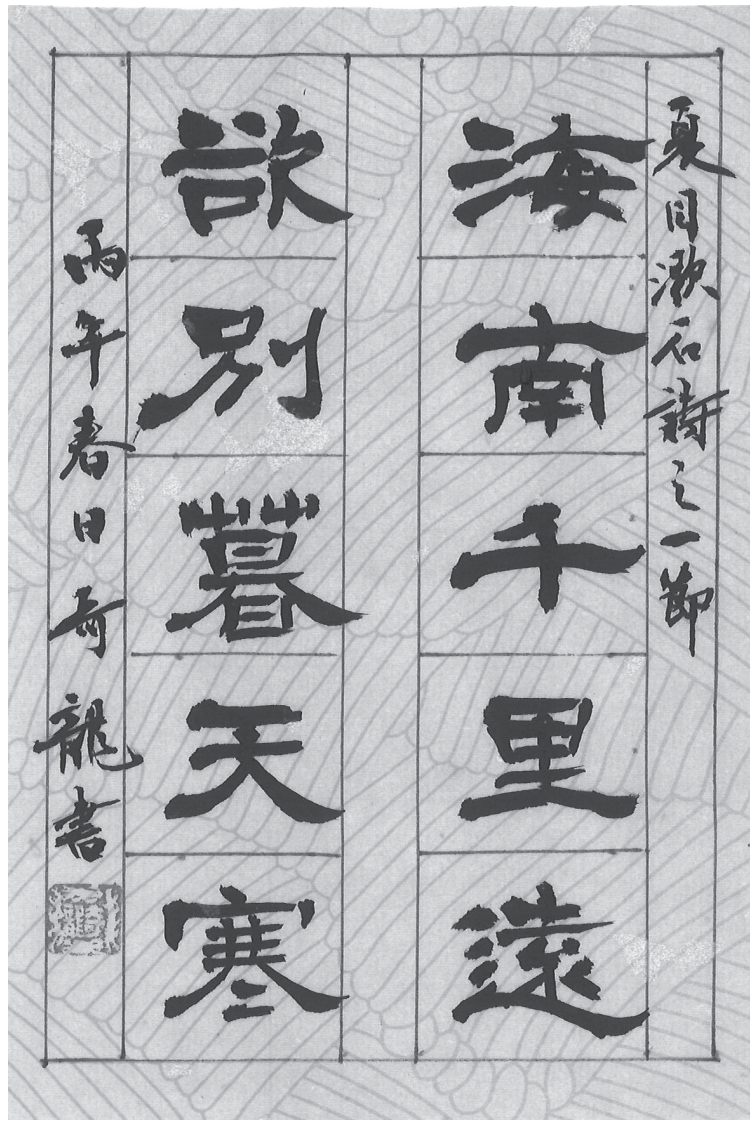 夏目漱石詩之一節
海南千里遠
欲別暮天寒
丙午春日奇龍書